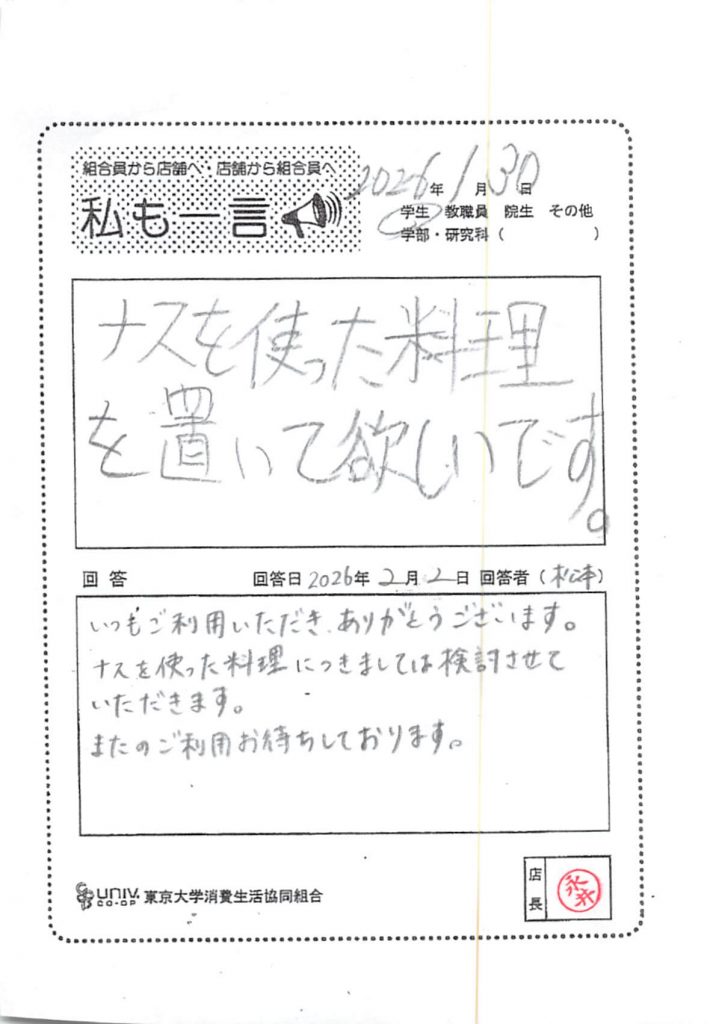 組合員から店舗へ・店舗から組合員へ
私も一言
2026年 1月 30日
学生 教職員 院生 その他
学部・研究科（ ）
ナスを使った料理
を置いて欲しいです。
回答 回答日 2026年 2月 2日 回答者（松本）
いつもご利用いただき、ありがとうございます。
ナスを使った料理につきましては検討させて
いただきます。
またのご利用お待ちしております。
UNIV. CO-OP 東京大学消費生活協同組合
店長